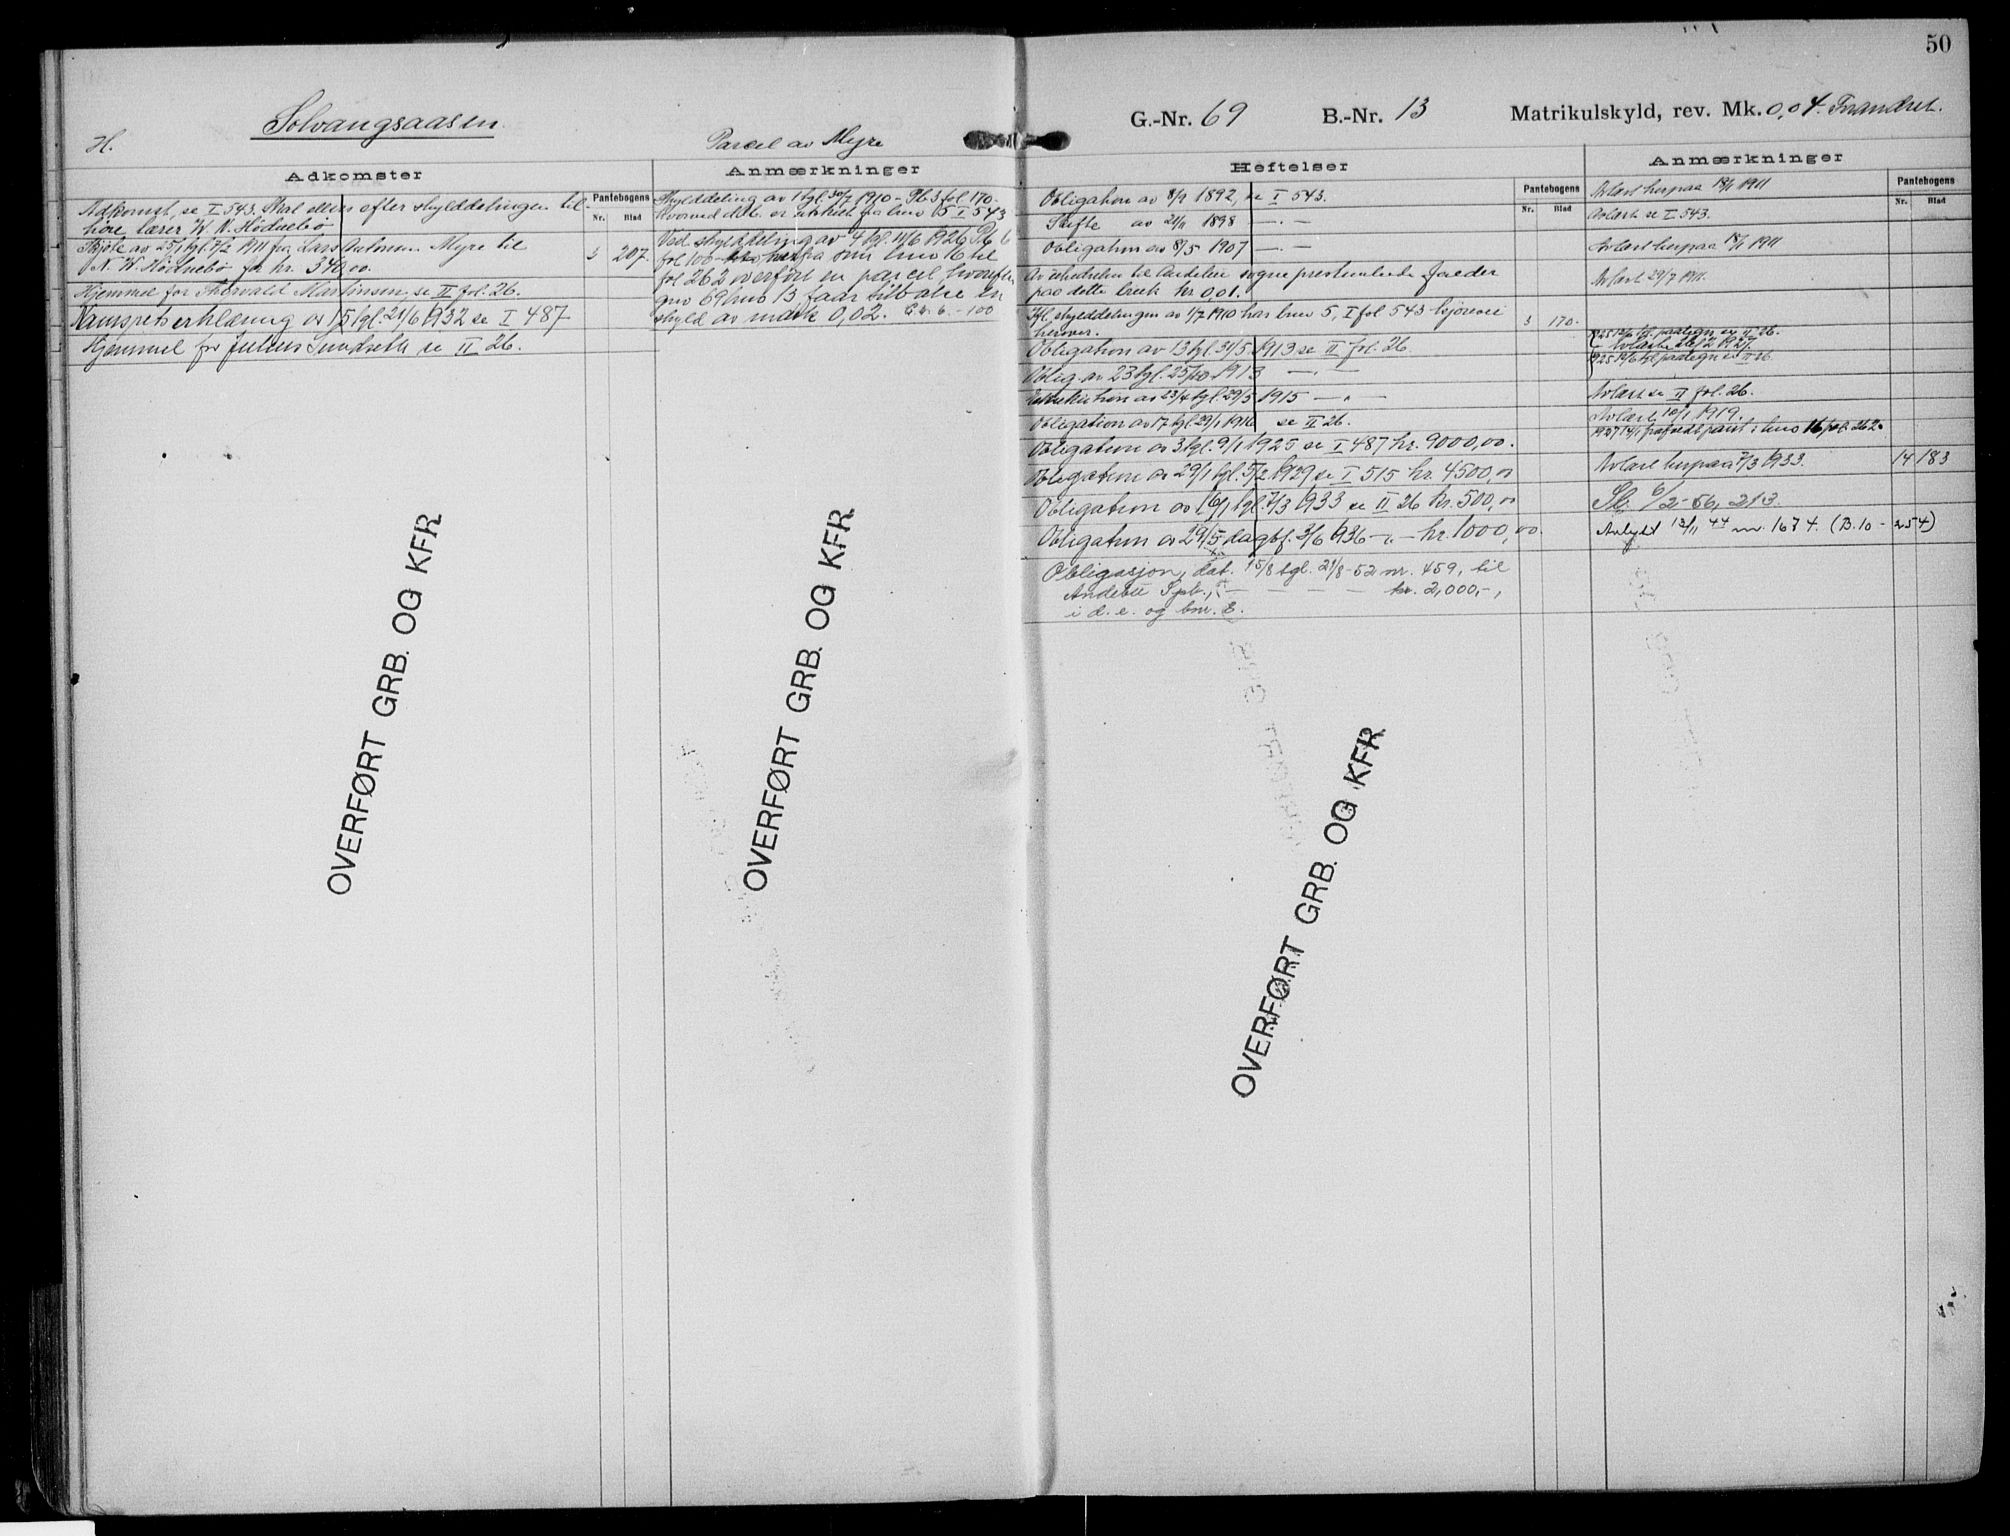 50
Solvangsaasen
H.
Parcel av Myre
G.-Nr. 69 B.-Nr. 13 Matrikulskyld, rev. Mk. 0,04. Forandret.
Adkomster
Pantebogens
Nr. Blad
Adkomst, se I 543. Skal ellers efter skylddelingen til-
høre lærer N. W. Hödnebö
Skjöte av 25/1 tgl. 7/2 1911 fra Lars Antonsen Myre til 3 207.
N. W. Hödnebö for kr. 340,00.
Hjemmel for Thorvald Martinsen, se II fol. 26.
Namsretserklæring av 15 tgl. 21/6 1932 se I 487
Hjemmel for Julius Sundsette se II 26.
Anmærkninger
Skylddeling av 1 tgl. 30/7 1910 - Pb 3 fol 170.
Hvorved dette er utskilt fra bno 5 I 543
Ved skylddeling av 4 tgl. 11/6 1926 Pb 6
fol 100 herfra som bno 16 til
fol 262 overført en parcel hvorefter
gno 69 bno 13 faar tilbake en
skyld av mark 0,02. 6 - 100
Heftelser
Pantebogens
Nr. Blad
Obligation av 8/9 1892, se I 543.
Skifte av 21/11 1898 —·—
Obligation av 8/5 1907 —·—
Av til Andebu sogneprestembede falder
paa dette bruk kr 0,01.
Ifl. skylddelingen av 1/7 1910 har bno 5, I fol 543 kjørevei 3 170.
herover.
Obligation av 13 tgl. 31/5 1913 se II fol. 26.
Oblig. av 23 tgl. 25/10 1913 —·—
av 23/4 tgl. 29/5 1915 —"—
Obligation av 17 tgl 29/1 1916 se II 26.
Obligation av 3 tgl. 9/1 1925 se I 487 kr. 9000,00.
Obligation av 29/1 tgl. 5/2 1929 se I 515 kr. 4500,00
Obligation av 16/1 tgl. 7/3 1933 se II 26 kr. 500,00
Obligation av 29/5 dagbf. 3/6 1936 —"— kr. 1000,00.
Obligasjon, dat. 15/8 tgl. 21/8-52 nr. 459, til
Andebu Spb., — — — — kr. 2,000,-,
i d. e. og bnr. 8.
Anmærkninger
Pantebogens
Nr. Blad
Avlæst herpaa 18/1 1911
Avlæst se I 543.
Avlæst herpaa 18/1 1911
Avlæst 29/7 1911.
1925 12/6 tgl. paategn se II 26.
Avlæst 26/2 1927.
1925 12/6 tgl. paategn se II 26.
Avlæst se II fol. 26.
Avlæst 10/1 1919.
1927 14/1 frafaldt pant i bno 16 fol. 262.
Avlæst herpaa 7/3 1933. 14 183
Sl. 6/2-56, 213.
Avlyst 13/11 44 nr. 1674. (B.10 - 254)
OVERFØRT GRB. OG KFR
OVERFØRT GRB. OG KFR
OVERFØRT GRB. OG KFR